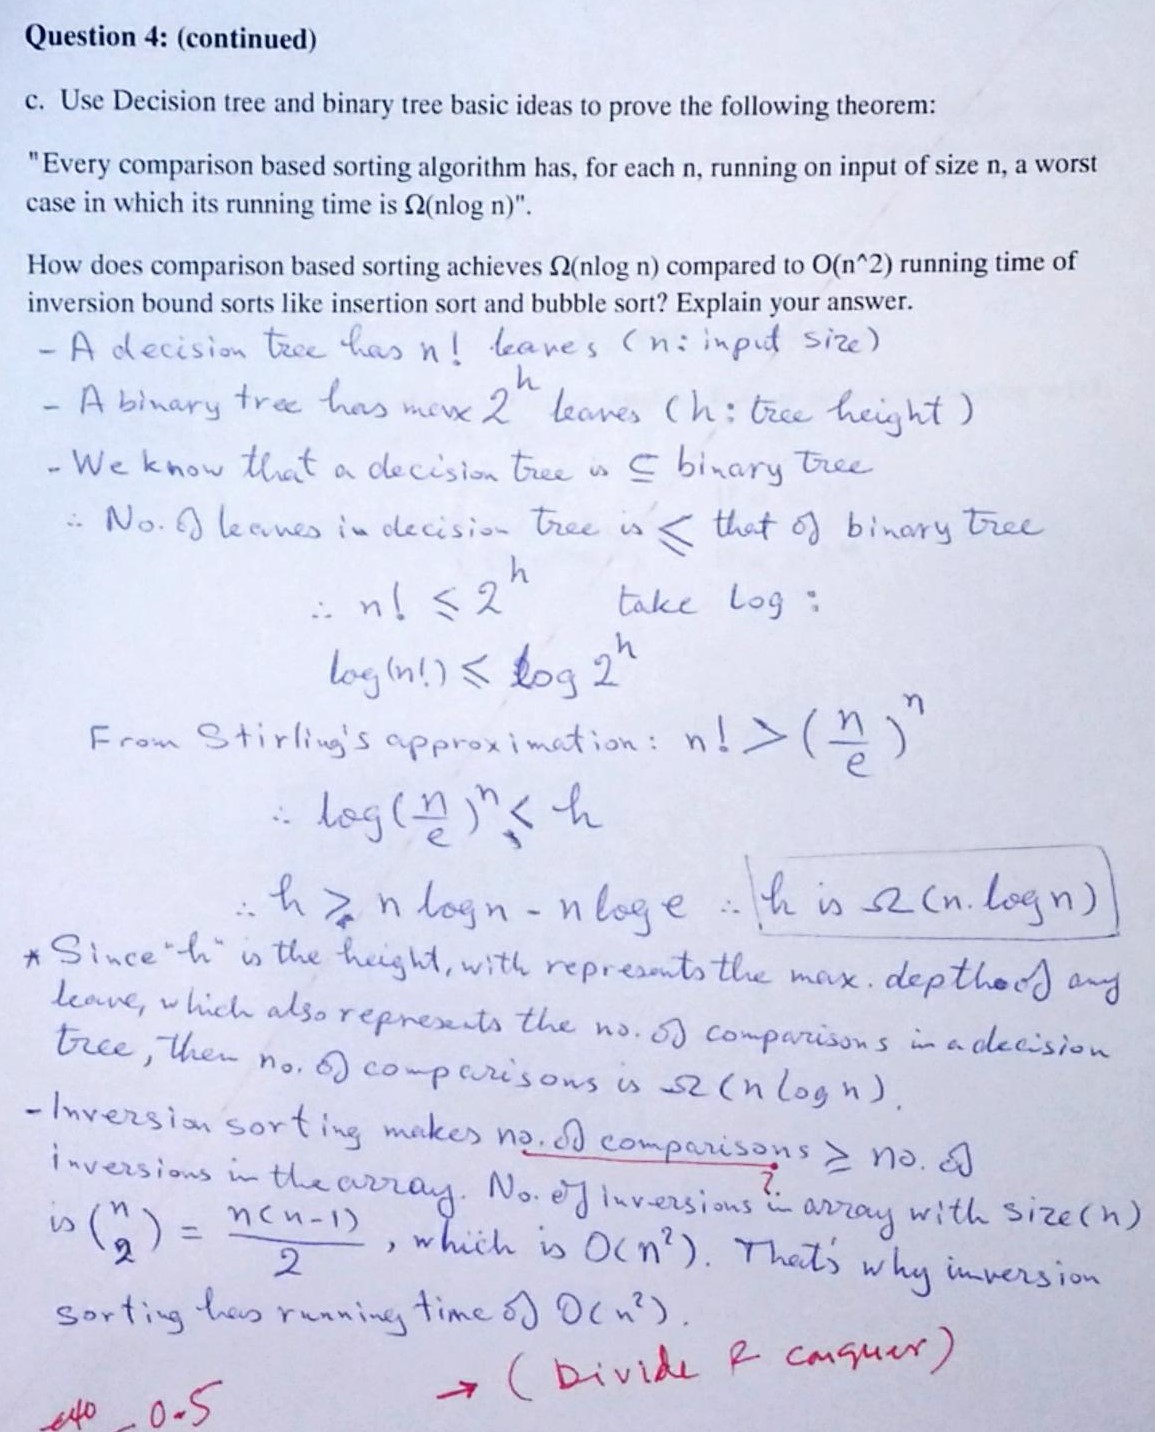 Question 4: (continued)
c. Use Decision tree and binary tree basic ideas to prove the following theorem:
"Every comparison based sorting algorithm has, for each n, running on input of size n, a worst
case in which its running time is Ω(nlog n)".
How does comparison based sorting achieves Ω(nlog n) compared to O(n^2) running time of
inversion bound sorts like insertion sort and bubble sort? Explain your answer.
- A decision tree has n! leaves (n: input size)
- A binary tree has max 2^h leaves (h: tree height)
- We know that a decision tree is ⊆ binary tree
∴ No. of leaves in decision tree is ≤ that of binary tree
∴ n! ≤ 2^h take log :
log(n!) ≤ log 2^h
From Stirling's approximation: n! > (n/e)^n
∴ log(n/e)^n ≤ h
∴ h ≥ n logn - n log e ∴ h is Ω(n.logn)
* Since "h" is the height, with represents the max. depth of any
leave, which also represents the no. of comparisons in a decision
tree, then no. of comparisons is Ω(n logn).
- Inversion sorting makes no. of comparisons ≥ no. of
?
inversions in the array. No. of inversions in array with size(n)
is (n 2) = n(n-1)/2, which is O(n²). That's why inversion
sorting has running time of O(n²).
→ (Divide & conquer)
-0.5